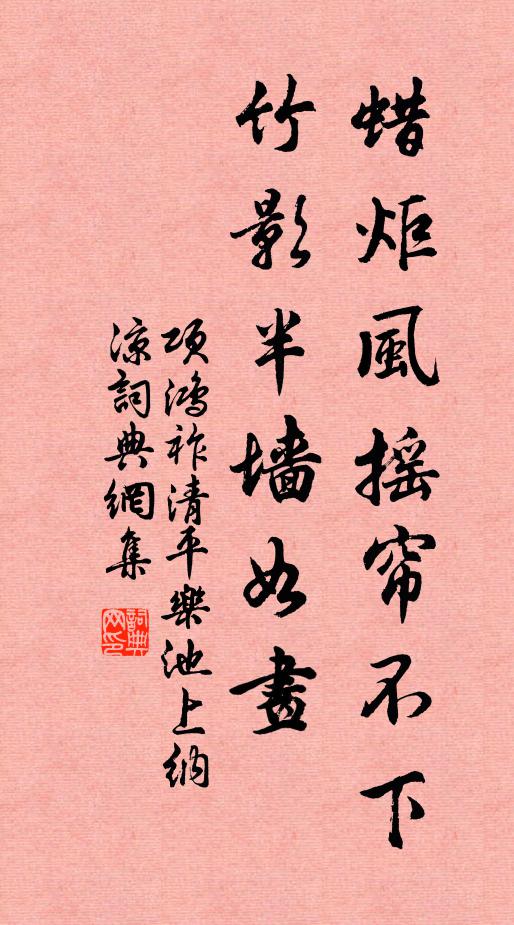 蜡炬風摇帘不下
竹影半墙如畫
項鴻祚清平樂池上納
凉詞典網集
詞典
网印